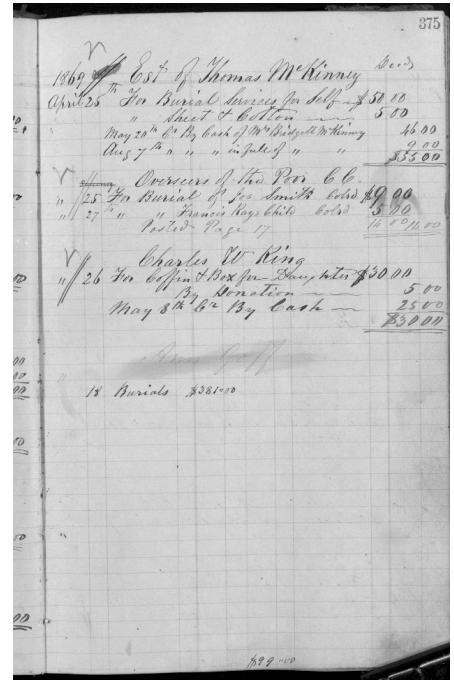 375
1869 Est of Thomas McKinney
April 25th For Burial Services for Self $50.00
" Sheet & Cotton 5 00
May 20th Cr By Cash of Mrs Bridgett McKinney 46 00
Aug 7th " " " in full of " " 9 00
$55.00
Overseers of the Poor C.C.
" 25 For Burial of Jos Smith cold $9.00
" 27th " " Francis Rays Child cold 5 00
Posted Page 17 14 00 14.00
Charles W King
" 26 For Coffin & Box for Daughter $30.00
By Donation 5 00
May 8th Cr By Cash 25 00
$30.00
18 Burials $381.00
00
00
00
$99.00